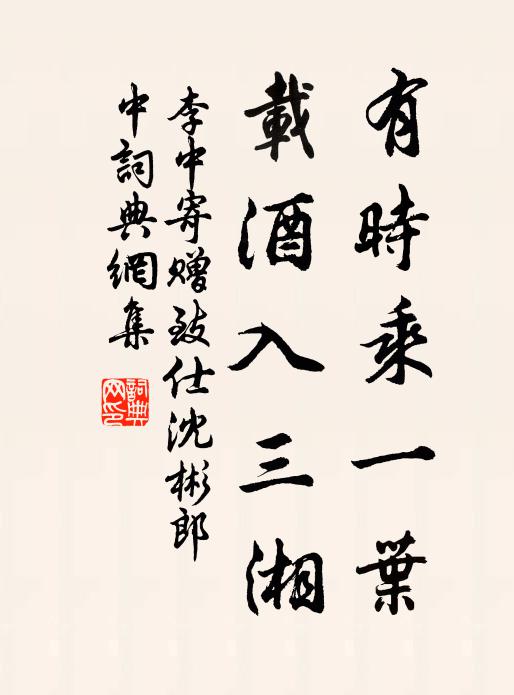 有時乘一葉
載酒入三湘
李中寄贈致仕沈彬郎
中詞典網集
詞典网印